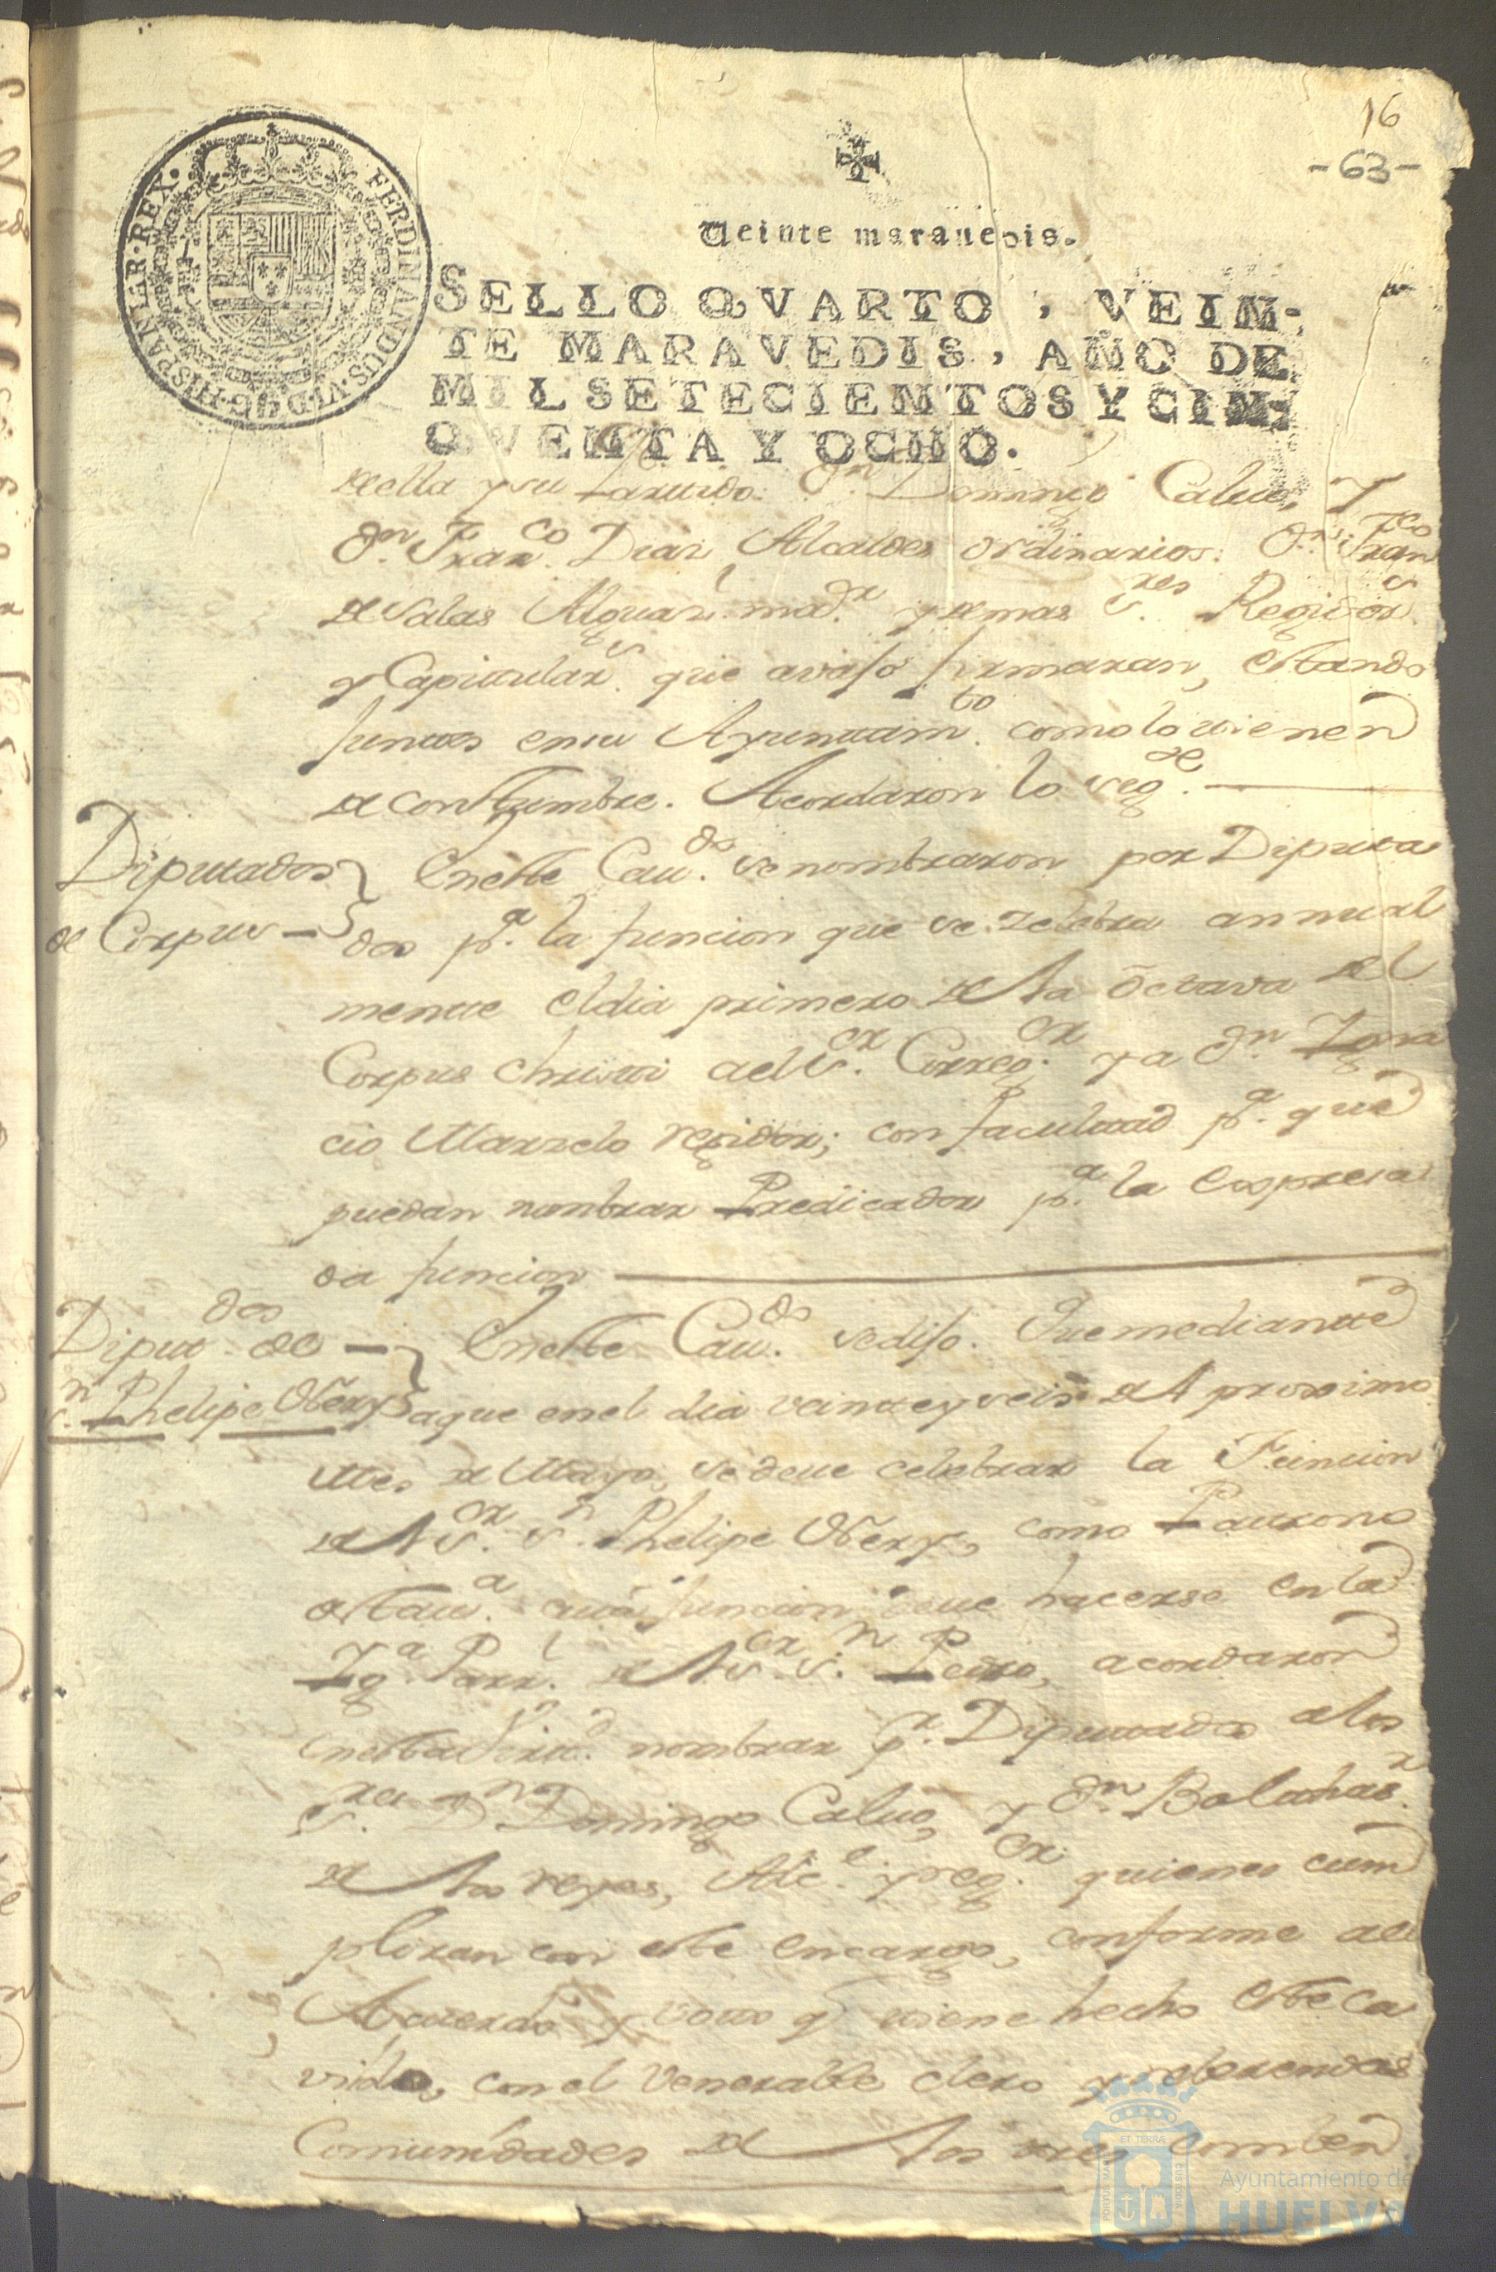 16
-63-
Veinte marauedis.
SELLO QVARTO, VEIN-
TE MARAVEDIS, AÑO DE
MIL SETECIENTOS Y CIN-
QVENTA Y OCHO.
FERDINANDUS·VI·D·G·HISPANIAR·REX·
de ella y su Partido. Dn. Domingo Caluo, y
Dn. Franco. Diaz, Alcaldes ordinarios. Dn. Franco
de Salas Alguazl. mar. y demas Sres. Regidors.
y Capitulars. que avajo firmaran, estando
juntos en su Ayuntamto. como lo tienen
de constumbre. Acordaron lo sigte.
Diputados
de Corpus
En este Caudo. se nombraron por Diputa
dos pa. la funcion que se zelebra annual
mente el dia primero de la Octava del
Corpus christi a el Sor. Corregor. y a Dn. Igna
cio Marzelo regidor; con facultad pa. que
puedan nombrar Predicador pa. la expresa
da funcion
Diputdos. de
Sn. Phelipe Nery
En este Caudo. se dijo. Que mediante
a que en el dia veinte y seis del proximo
Mes de Mayo, se deue celebrar la Funcion
del Sor. Sn. Phelipe Nery, como Patrono
de esta va. cuia funcion deue hacerse en la
Iga. Parrl. del Sor. Sn. Pedro, acordaron
en esta virtd. nombrar pr. Diputados a los
Sres. Dn. Domingo Caluo, y Dn. Balthasr.
de los reyes, Alce. y regor. quienes cum
pliran con este encargo, conforme a el
Acuerdo y voto q tiene hecho este Ca
vildo, con el Venerable clero y reberendas
Comunidades de los tres comben
ET TERRÆ
PORTUS MARIS
CUSTODIA
Ayuntamiento de
HUELVA